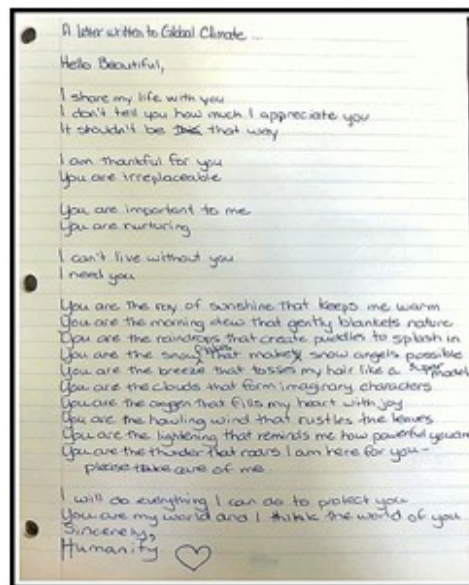 A letter written to Global Climate ...
Hello Beautiful,
I share my life with you
I don't tell you how much I appreciate you
It shouldn't be that way
I am thankful for you
You are irreplaceable
You are important to me
You are nurturing
I can't live without you
I need you
You are the ray of sunshine that keeps me warm
You are the morning dew that gently blankets nature
You are the raindrops that create puddles to splash in
You are the snowflakes that make snow angels possible
You are the breeze that tosses my hair like a super model
You are the clouds that form imaginary characters
You are the oxygen that fills my heart with joy
You are the howling wind that rustles the leaves
You are the lightening that reminds me how powerful you are
You are the thunder that roars I am here for you-
please take care of me
I will do everything I can do to protect you
You are my world and I think the world of you
Sincerely,
Humanity ♡